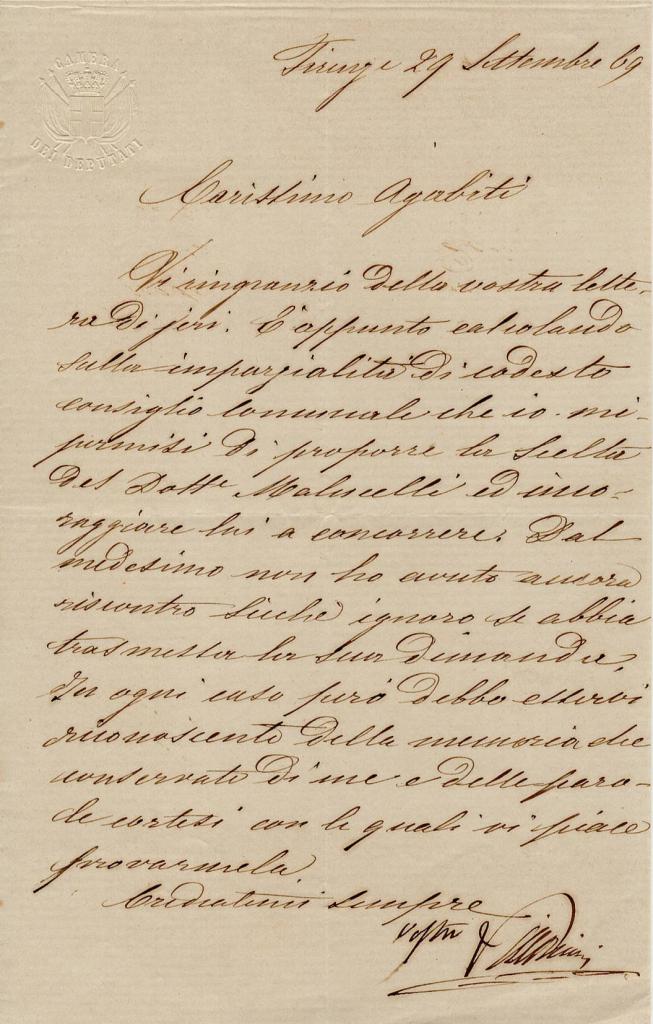 CAMERA
DEI DEPUTATI
Firenze 29 Settembre 69
Carissimo Agabiti
Vi ringranzio della vostra lette-
ra di jeri. È appunto calcolando
sulla imparzialità di codesto
consiglio comunale che io mi
permisi di proporre la scelta
del Dotte Malucelli ed inco-
raggiare lui a concorrere. Dal
medesimo non ho avuto ancora
riscontro sicchè ignoro se abbia
trasmessa la sua dimanda.
In ogni caso però debbo esservi
riconoscente della memoria che
conservate di me e delle paro-
le cortesi con le quali vi piace
provarmela
Credetemi sempre
vostro